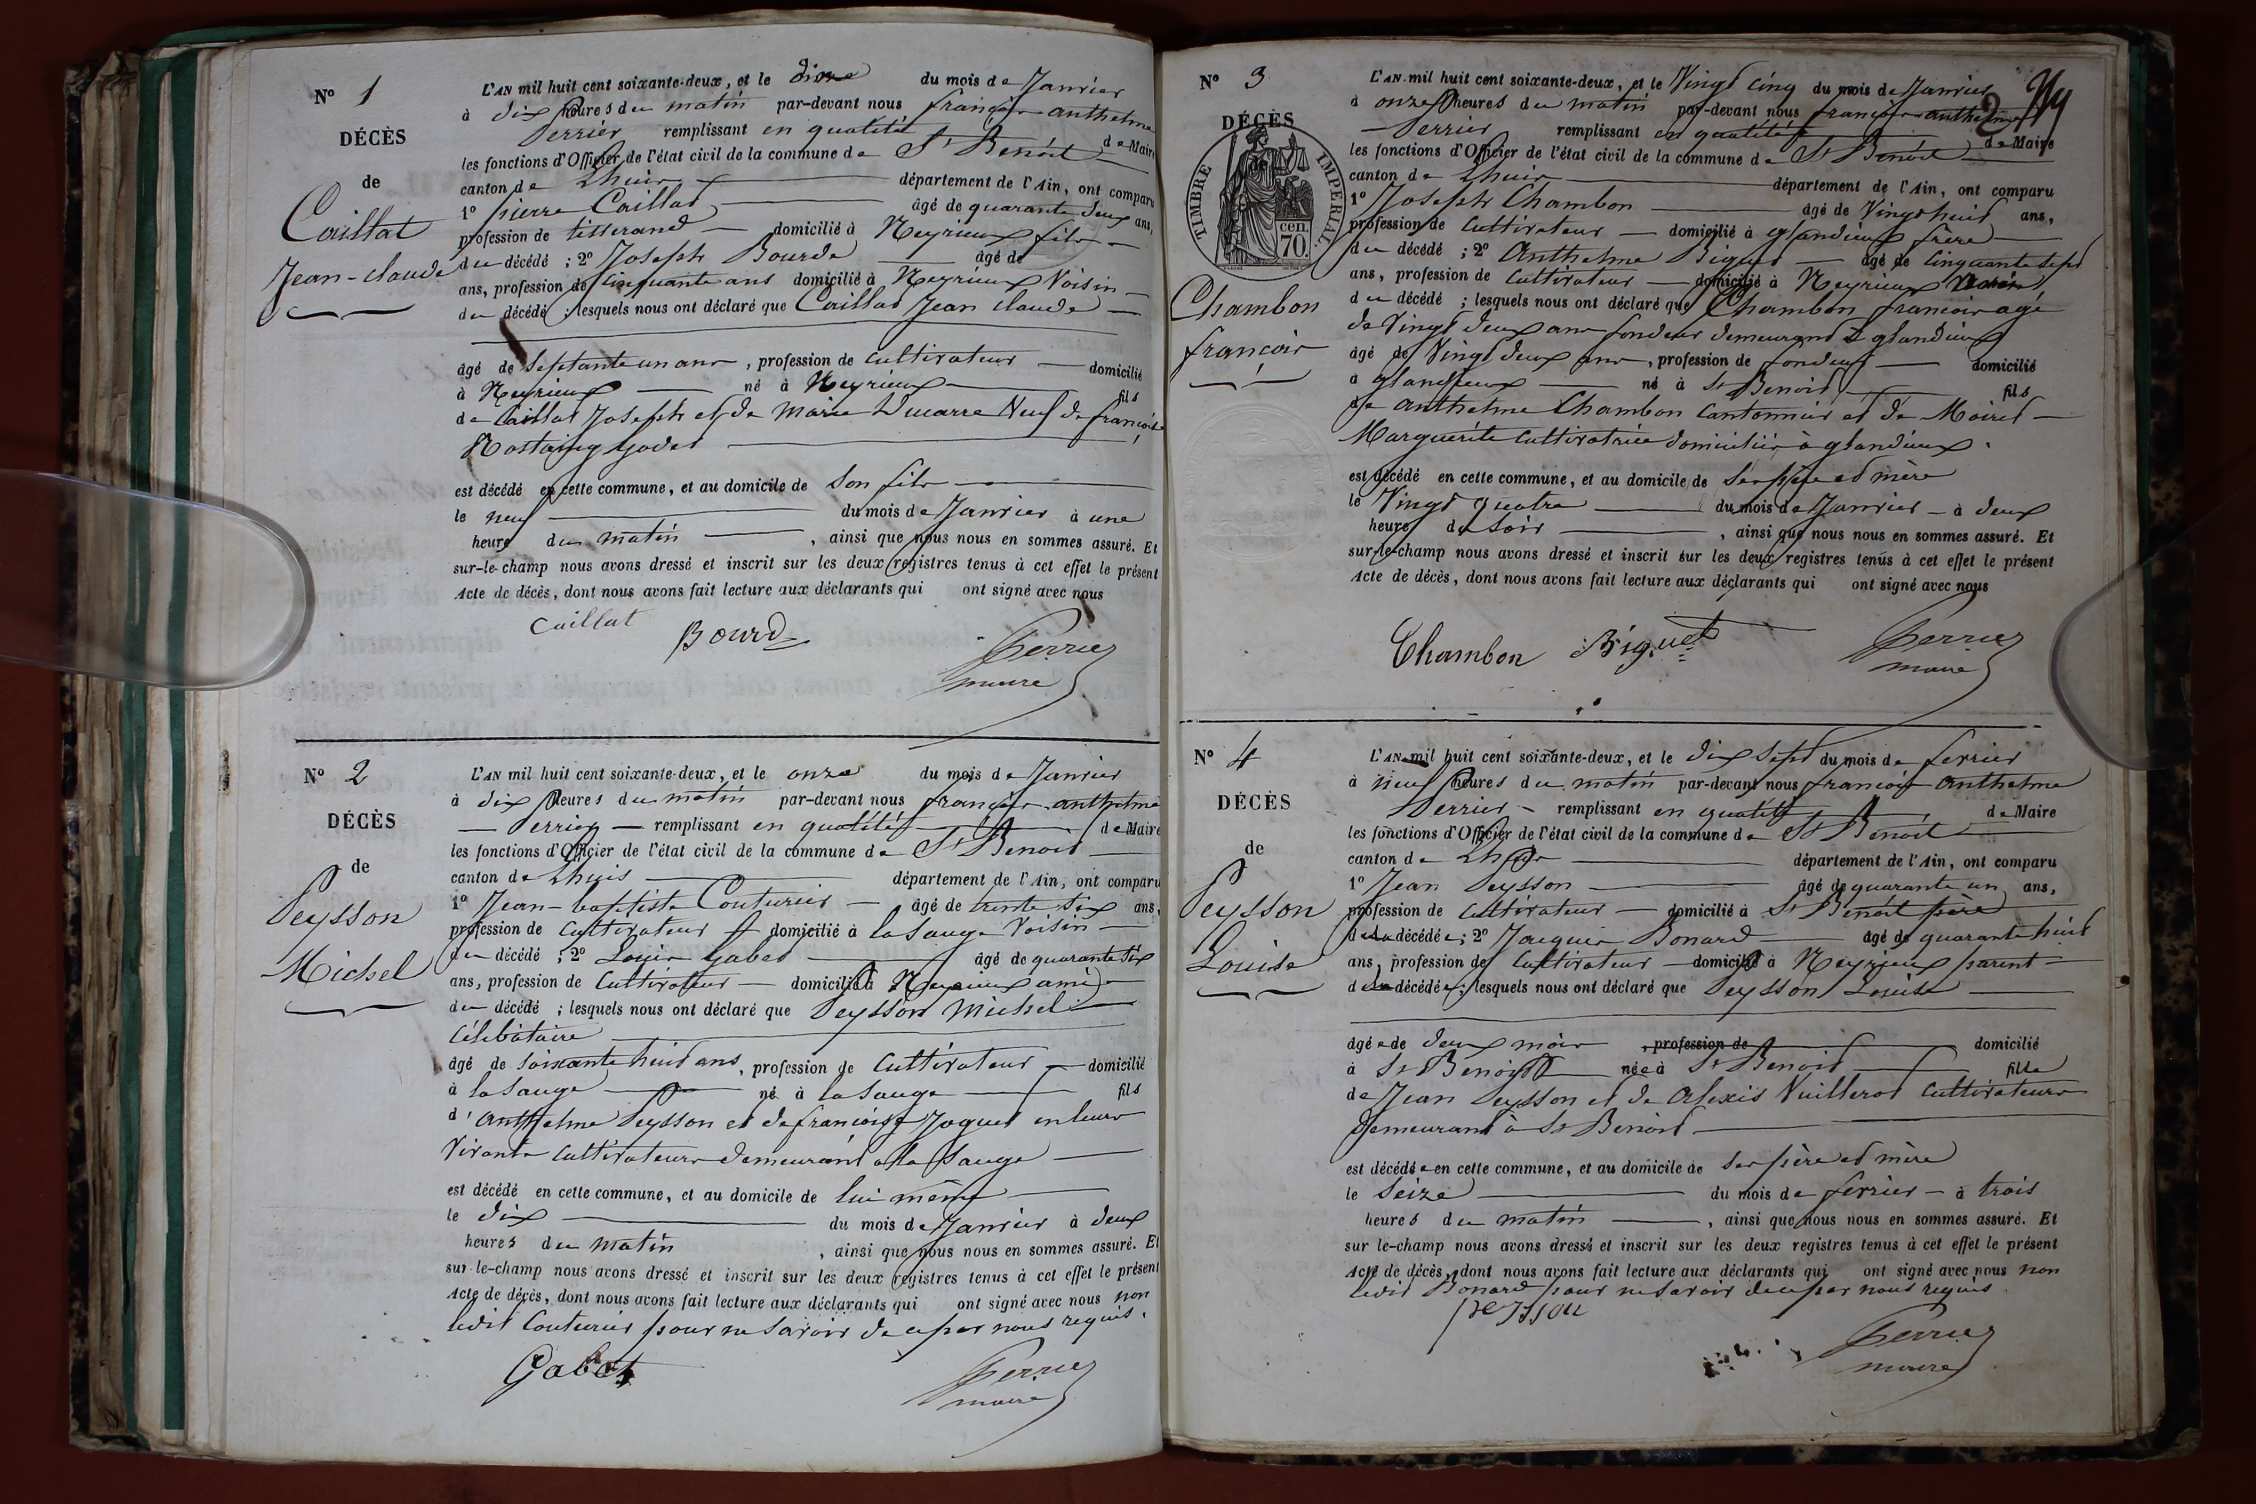 N° 1
DÉCÈS
de
Caillat
Jean-claude
L'AN mil huit cent soixante-deux, et le dix du mois de Janvier
à dix heures du matin par-devant nous françois anthelme
Perrier remplissant en qualité de Maire
les fonctions d'Officier de l'état civil de la commune de St Benoit
canton de Lhuis département de l'Ain, ont comparu
1° pierre Caillat âgé de quarante deux ans,
profession de tisserand domicilié à Neyrieux fils
du décédé ; 2° Joseph Bourde âgé de
ans, profession de cinquante ans domicilié à Neyrieux Voisin
du décédé ; lesquels nous ont déclaré que Caillat Jean claude
âgé de septante un ans, profession de cultivateur domicilié
à Neyrieux né à Neyrieux fils
de Caillat Joseph et de Marie Ducarre Veuf de françoise
Rostaing godet
est décédé en cette commune, et au domicile de son fils
le neuf du mois de Janvier à une
heure du matin, ainsi que nous nous en sommes assuré. Et
sur-le-champ nous avons dressé et inscrit sur les deux registres tenus à cet effet le présent
Acte de décès, dont nous avons fait lecture aux déclarants qui ont signé avec nous
Caillat Bourde Perrier
maire
N° 2
DÉCÈS
de
Peysson
Michel
L'AN mil huit cent soixante-deux, et le onze du mois de Janvier
à dix heures du matin par-devant nous françois anthelme
Perrier remplissant en qualité de Maire
les fonctions d'Officier de l'état civil de la commune de St Benoit
canton de Lhuis département de l'Ain, ont comparu
1° Jean-baptiste Couturier âgé de trente six ans,
profession de cultivateur domicilié à la Sauge Voisin
du décédé ; 2° Louis Gabet âgé de quarante six
ans, profession de Cultivateur domicilié à Neyrieux ami
du décédé ; lesquels nous ont déclaré que Peysson Michel
Célibataire
âgé de soixante huit ans, profession de cultivateur domicilié
à la Sauge né à la Sauge fils
d'anthelme Peysson et de françoise Joguet en leurs
Vivants Cultivateurs demeurant à la Sauge
est décédé en cette commune, et au domicile de lui même
le dix du mois de Janvier à deux
heures du matin, ainsi que nous nous en sommes assuré. Et
sur-le-champ nous avons dressé et inscrit sur les deux registres tenus à cet effet le présent
Acte de décès, dont nous avons fait lecture aux déclarants qui ont signé avec nous non
ledit Couturier pour ne savoir de ce par nous requis.
Gabet Perrier
maire
N° 3
DÉCÈS
TIMBRE IMPERIAL
cen.
70.
Chambon
françois
2
L'AN mil huit cent soixante-deux, et le Vingt cinq du mois de Janvier
à onze heures du matin par-devant nous françois anthelme
Perrier remplissant en qualité de Maire
les fonctions d'Officier de l'état civil de la commune de St Benoit
canton de Lhuis département de l'Ain, ont comparu
1° Joseph Chambon âgé de Vingt huit ans,
profession de Cultivateur domicilié à glandieux frère
du décédé ; 2° Anthelme Biguet âgé de Cinquante sept
ans, profession de Cultivateur domicilié à Neyrieux Voisin
du décédé ; lesquels nous ont déclaré que Chambon françois agé
de Vingt deux ans fondeur demeurant à glandieux
âgé de Vingt deux ans, profession de fondeur domicilié
à glandieux né à St Benoit fils
de anthelme Chambon Cantonnier et de Moiret
Marguerite Cultivatrice domiciliés à glandieux.
est décédé en cette commune, et au domicile de ses père et mère
le Vingt quatre du mois de Janvier à deux
heure du soir, ainsi que nous nous en sommes assuré. Et
sur-le-champ nous avons dressé et inscrit sur les deux registres tenus à cet effet le présent
Acte de décès, dont nous avons fait lecture aux déclarants qui ont signé avec nous
Chambon Biguet Perrier
maire
N° 4
DÉCÈS
de
Peysson
Louise
L'AN mil huit cent soixante-deux, et le dix sept du mois de fevrier
à neuf heures du matin par-devant nous françois anthelme
Perrier remplissant en qualité de Maire
les fonctions d'Officier de l'état civil de la commune de St Benoit
canton de Lhuis département de l'Ain, ont comparu
1° Jean Peysson âgé de quarante un ans,
profession de Cultivateur domicilié à St Benoit père
de la décédée ; 2° Jacques Bonard âgé de quarante huit
ans, profession de Cultivateur domicilié à Neyrieux parent
de la décédée ; lesquels nous ont déclaré que Peysson Louise
âgée de deux mois, profession de domicilié
à St Benoit née à St Benoit fille
de Jean Peysson et de Alexis Vuillerot Cultivateurs
demeurant à St Benoit
est décédée en cette commune, et au domicile de ses père et mère
le Seize du mois de fevrier à trois
heures du matin, ainsi que nous nous en sommes assuré. Et
sur le-champ nous avons dressé et inscrit sur les deux registres tenus à cet effet le présent
Acte de décès, dont nous avons fait lecture aux déclarants qui ont signé avec nous non
ledit Bonard pour ne savoir de ce par nous requis.
peysson Perrier
maire